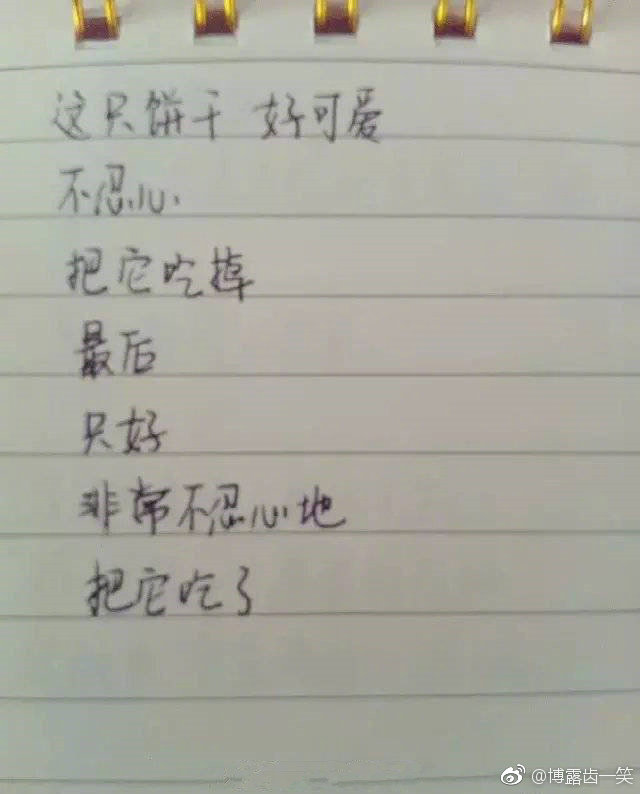 这只饼干 好可爱
不忍心
把它吃掉
最后
只好
非常不忍心地
把它吃了
@博露齿一笑